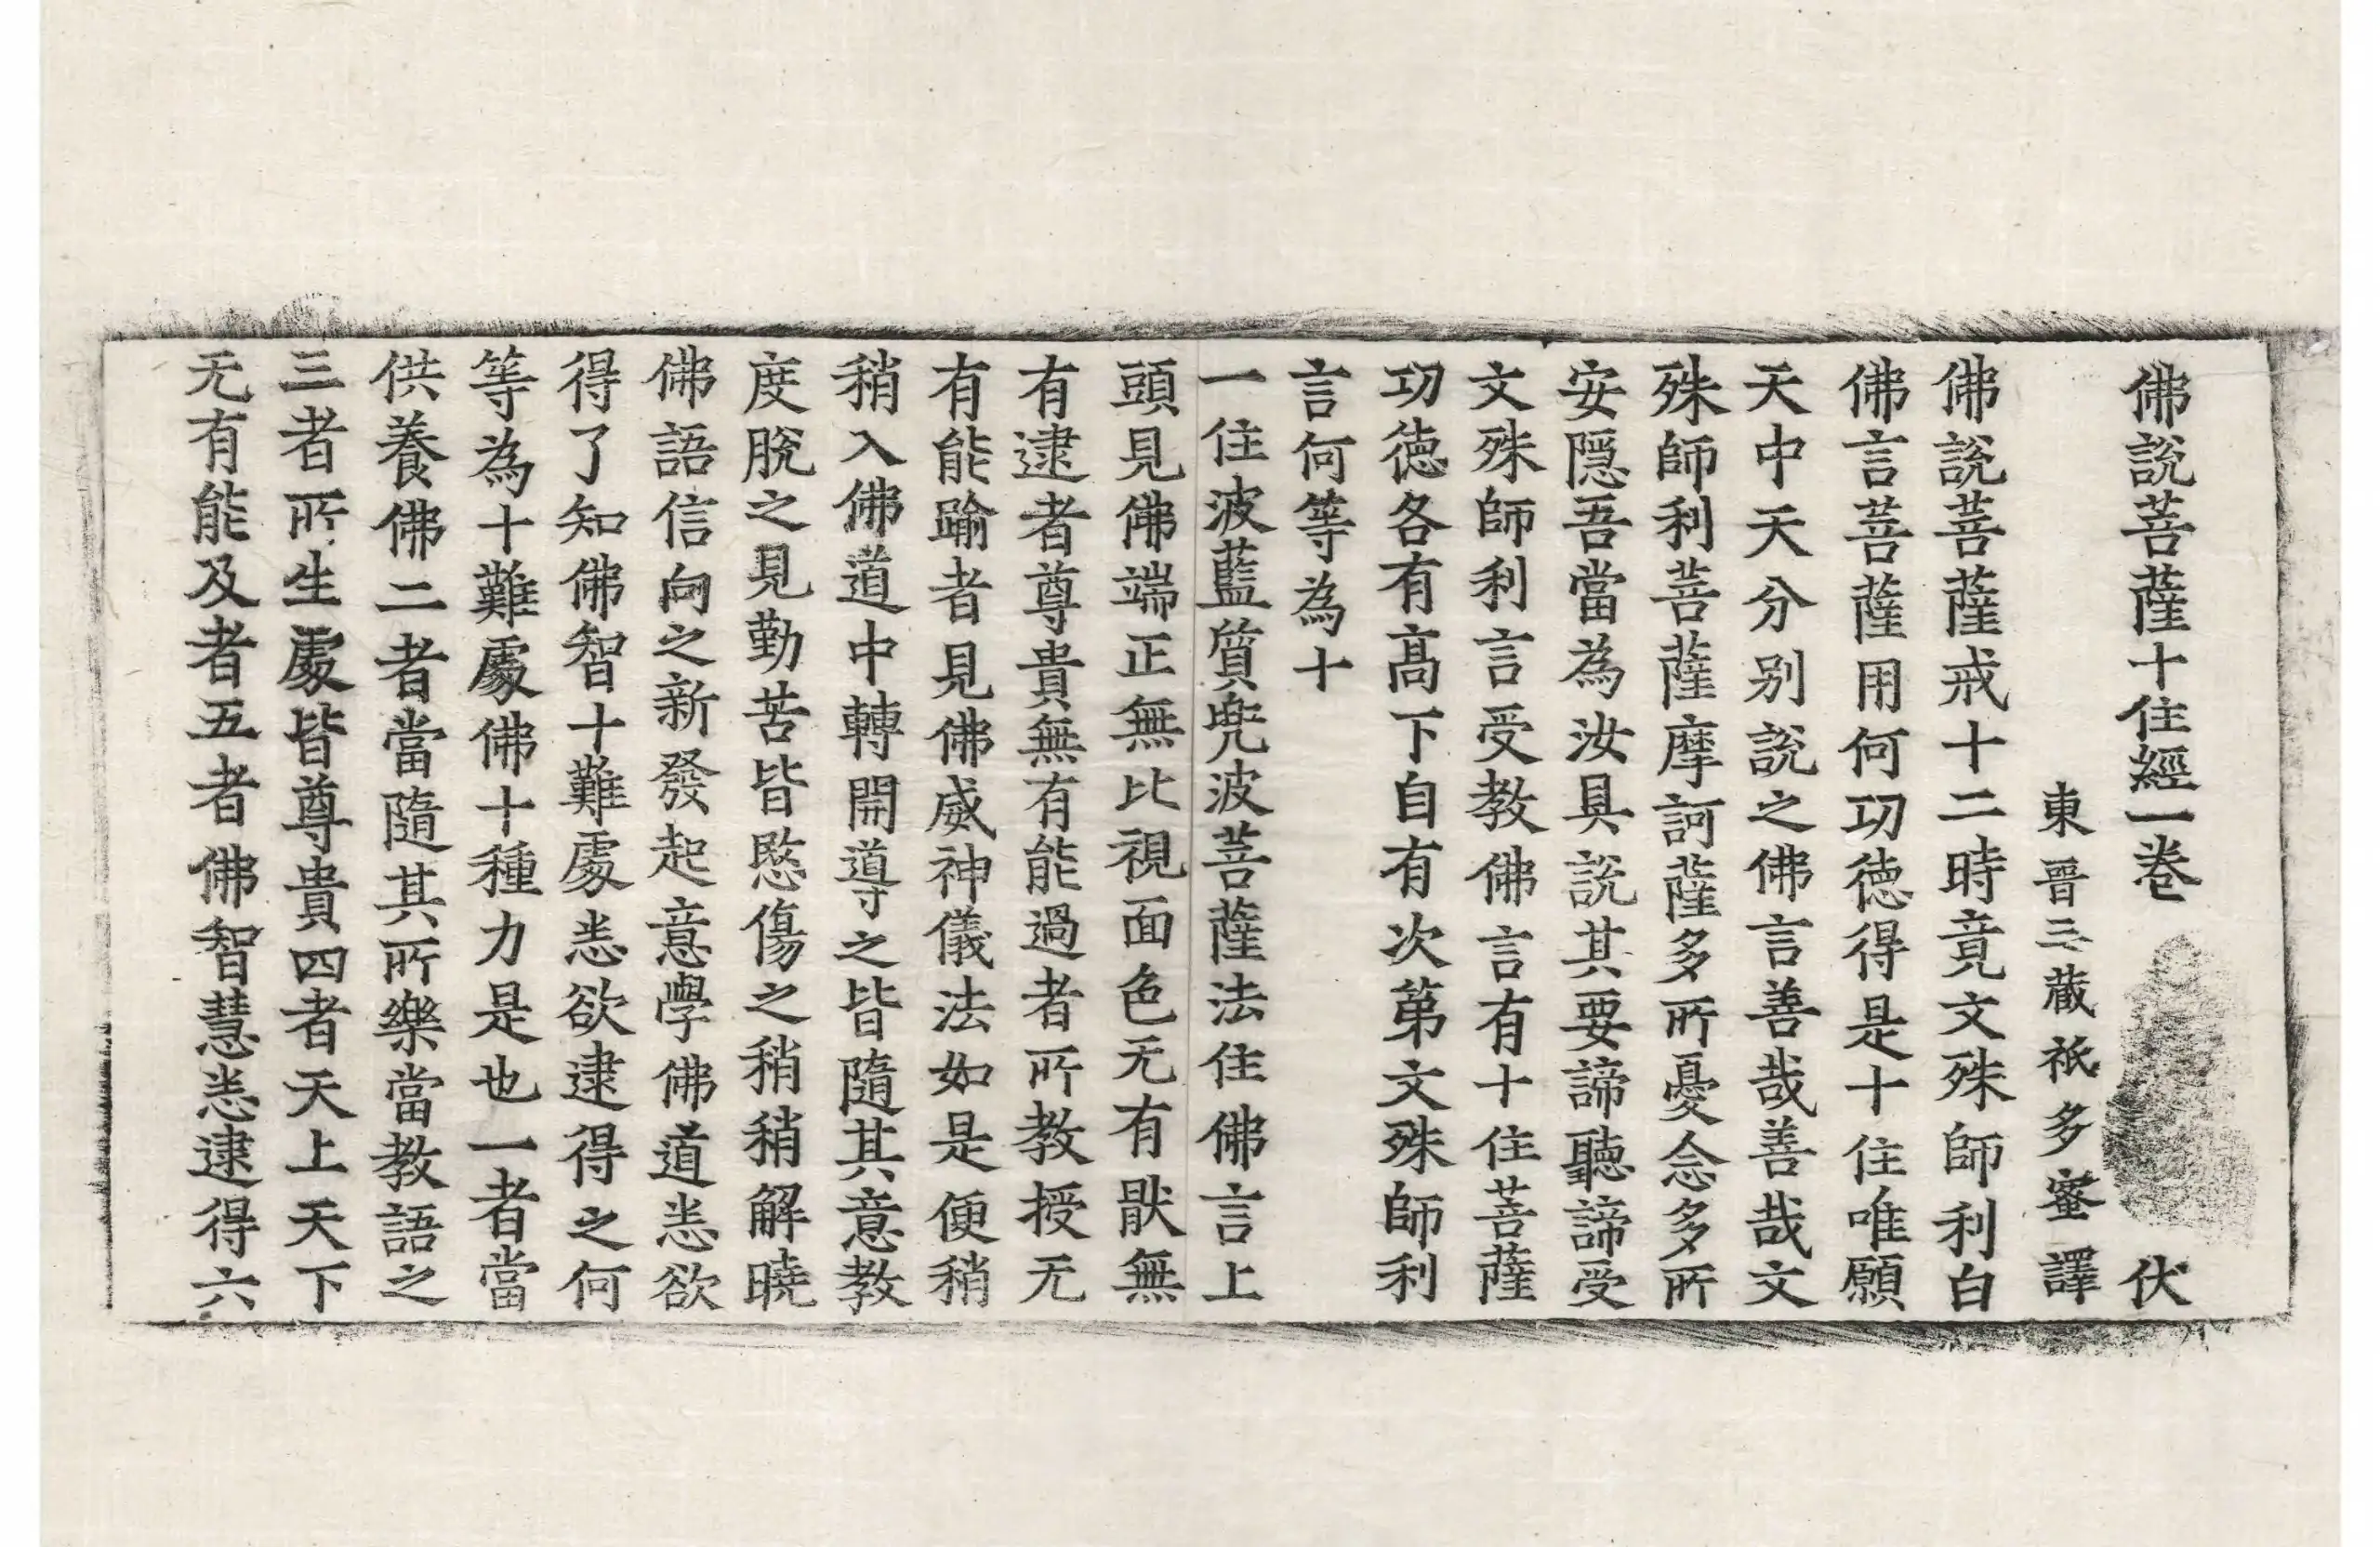 佛說菩薩十住經一卷 伏
東晉三藏祇多蜜譯
佛說菩薩戒十二時竟文殊師利白
佛言菩薩用何功德得是十住唯願
天中天分別說之佛言善哉善哉文
殊師利菩薩摩訶薩多所憂念多所
安隱吾當為汝具說其要諦聽諦受
文殊師利言受教佛言有十住菩薩
功德各有高下自有次第文殊師利
言何等為十
一住波藍質兜波菩薩法住佛言上
頭見佛端正無比視面色无有猒無
有逮者尊貴無有能過者所教授无
有能踰者見佛威神儀法如是便稍
稍入佛道中轉開導之皆隨其意教
度脫之見勤苦皆愍傷之稍稍解曉
佛語信向之新發起意學佛道悉欲
得了知佛智十難處悉欲逮得之何
等為十難處佛十種力是也一者當
供養佛二者當隨其所樂當教語之
三者所生處皆尊貴四者天上天下
无有能及者五者佛智慧悉逮得六